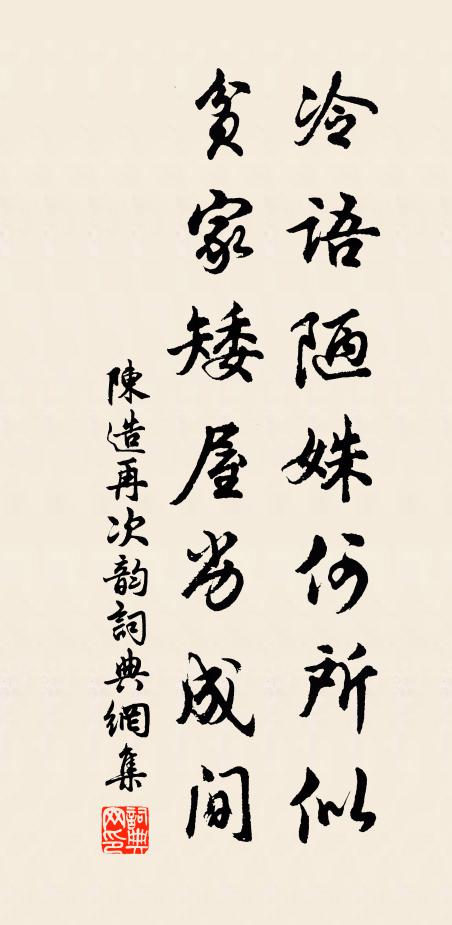 冷語陋姝何所似
貧家矮屋劣成间
陳造再次韵詞典網集
詞典網印